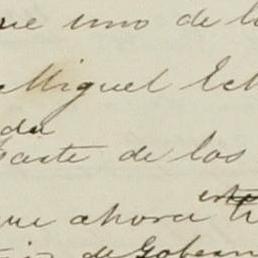 que uno de l
Miguel Ech
da
parte de los
que ahora
de Gobern